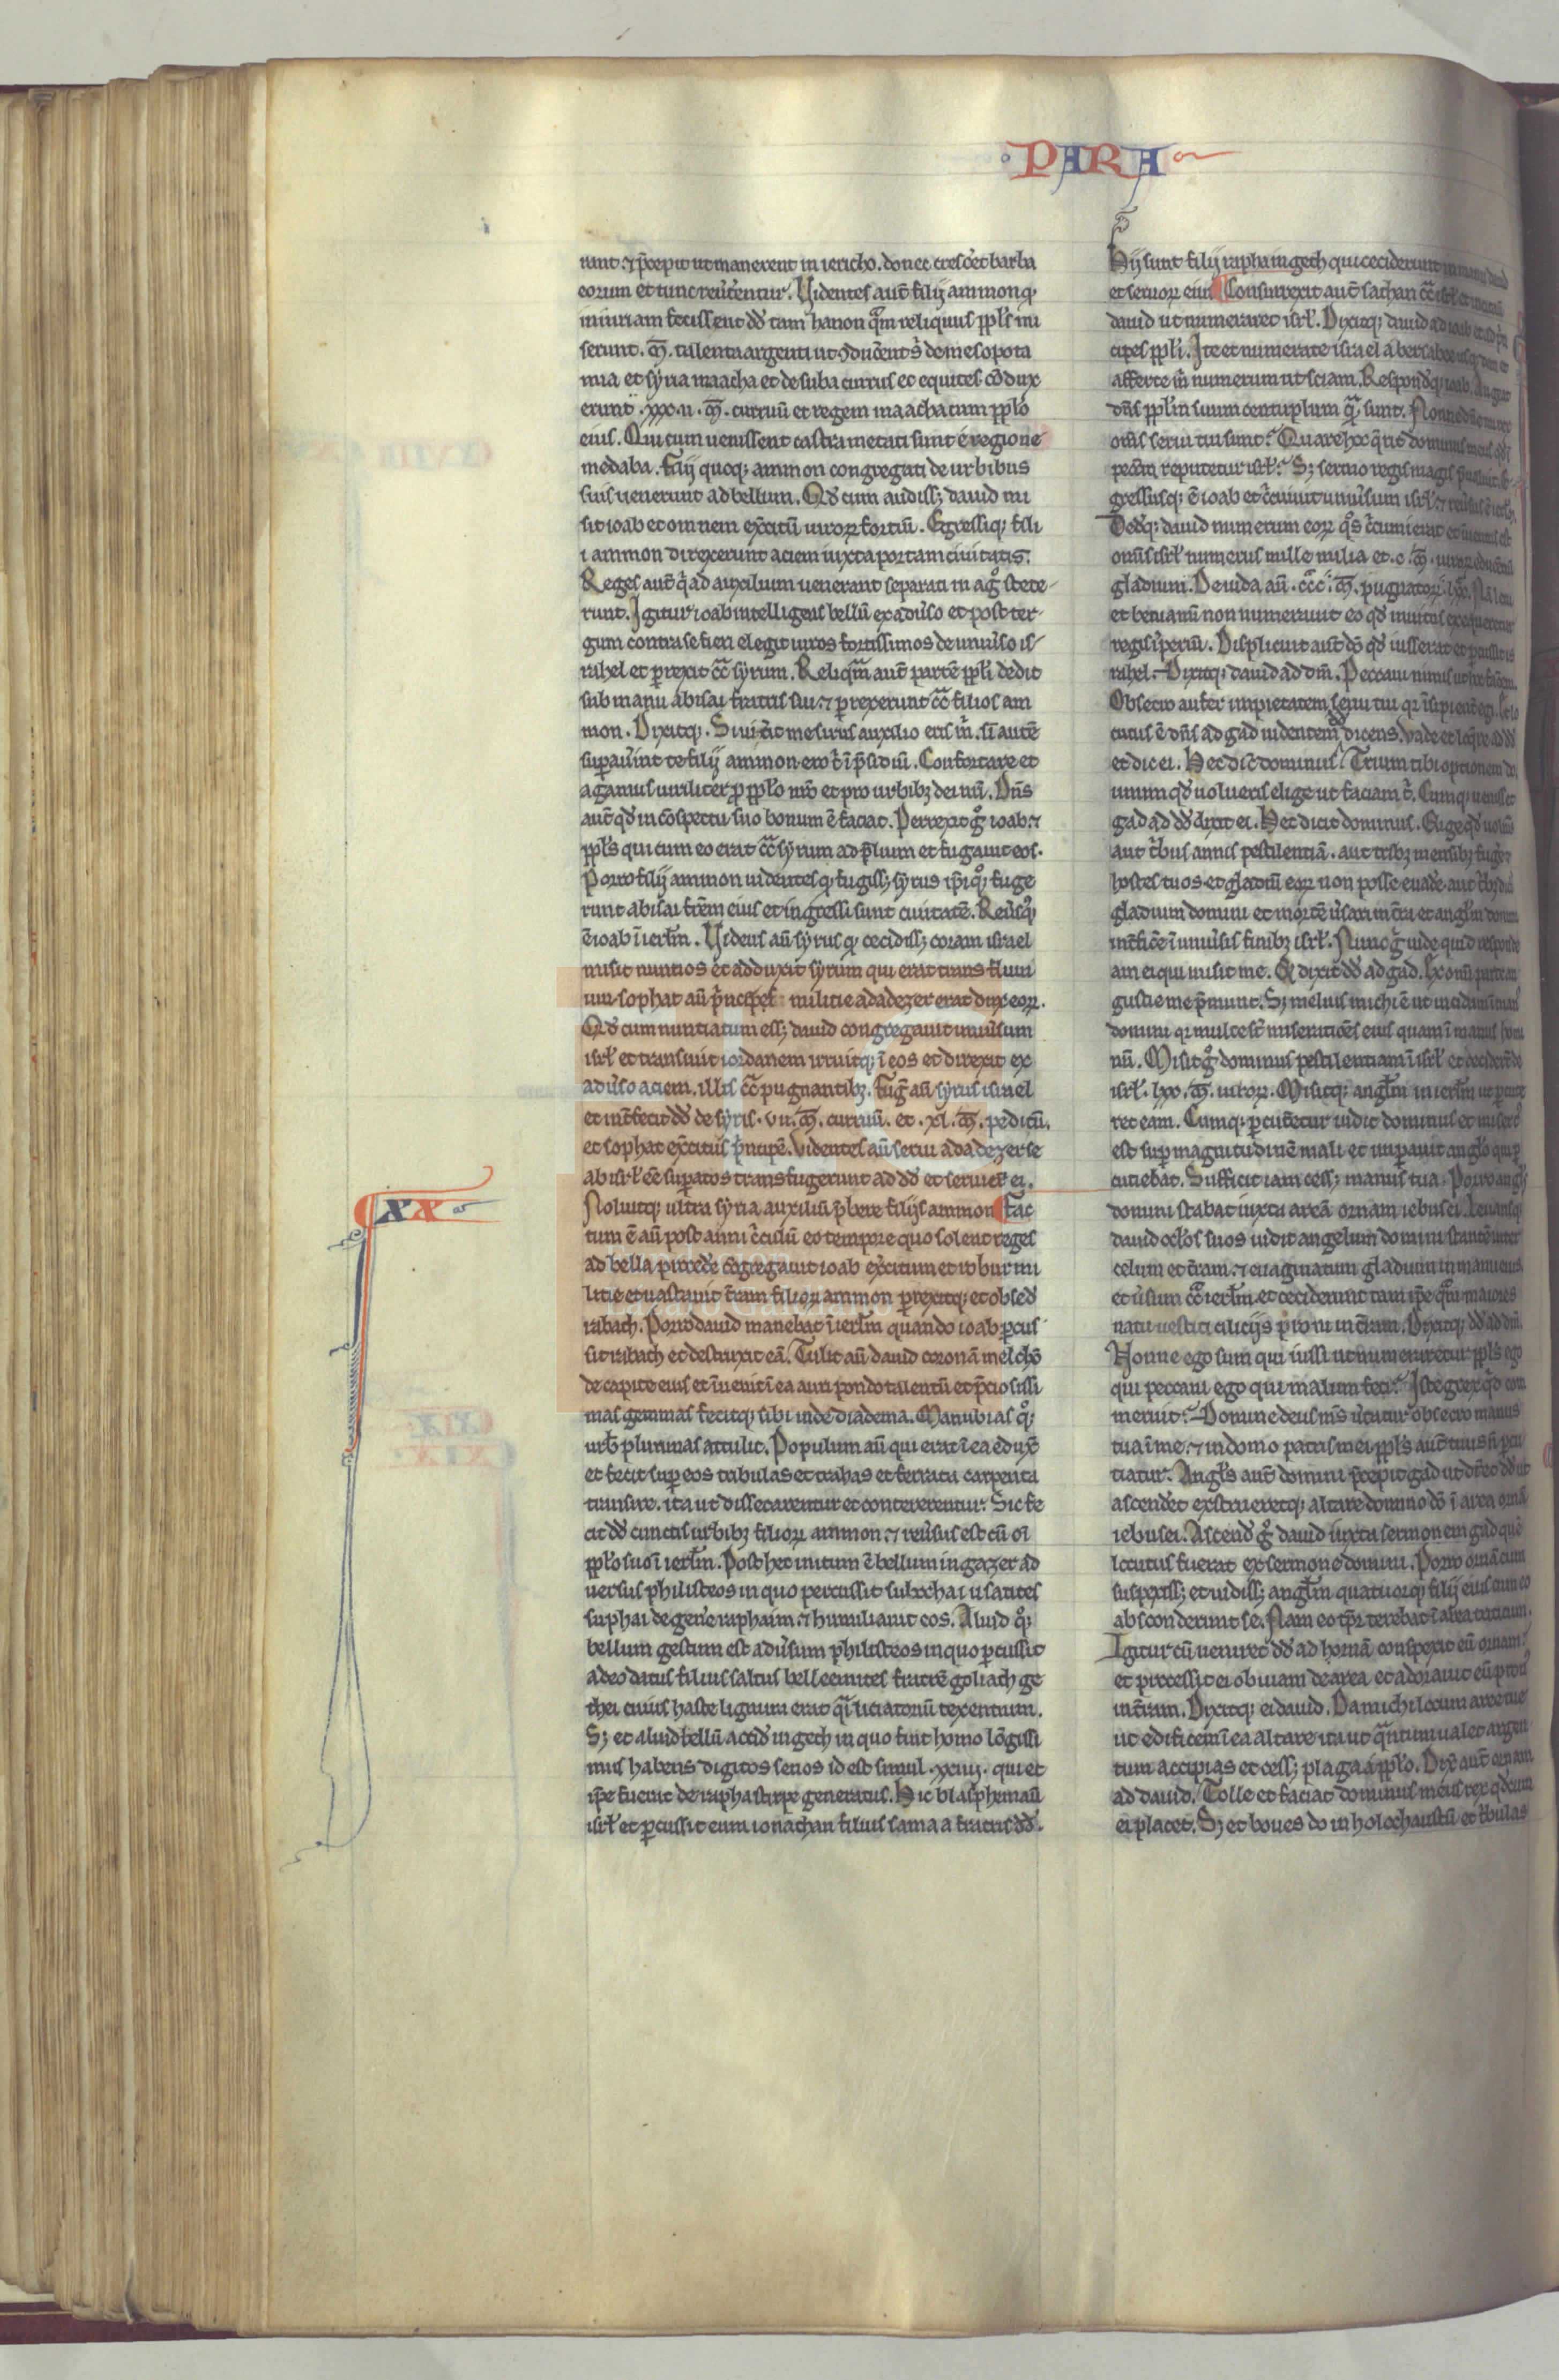 PARA
rant. et p̄cepit ut manerent in iericho. donec cresc̄et barba
eorum et tunc reuert̄entur. Uidentes aut̄ filij ammon q
iniuriam fecissent dd̄ tam hanon q̄m reliquus ppl̄s mi
serunt .m̄. talenta argenti ut 9duc̄ent s̄ de mesopota
mia et syria maacha et de suba currus et equites cōdux
erunt .xxx.ii.m̄. curruū et regem maacha cum ppl̄o
eius. Qui cum uenissent castra metati sunt e regione
medaba. filij quoq; ammon congregati de urbibus
suis uenerunt ad bellum. Qd̄ cum audiss; dauid mi
sit ioab et omnem exc̄itū uiroꝝ fortiū. Egressiq; fili
i ammon direxerunt aciem iuxta portam ciuitatis.
Reges aut̄ q̇ ad auxilium uenerant separati in ag̊ stete
runt. Igitur ioab intelligens bellū ex adūso et post ter
gum contra se fieri elegit uiros fortissimos de uniūso is
rahel et ꝑrexit cc̄ syrum. Reliq̄m aut̄ partē ppl̄i dedit
sub manu abisai fratris sui. et ꝑrexerunt cc̄ filios am
mon. Dixitq;. Si uic̄it me sirus auxilio eris m̄. si autē
suꝑaūint te filij ammon. ero t̄ ī p̄sidiū. Confortare et
agamus uiriliter ꝓ ppl̄o nr̄o et pro urbibꝫ dei nr̄i. Dn̄s
aut̄ qd̄ in cōspectu suo bonum ē faciat. Perrexit g̊ ioab. et
ppl̄s qui cum eo erat cc̄ syrum ad p̄lium et fugauit eos.
Porro filij ammon uidentes q fugiss; syrus ip̄i q̊; fuge
runt abisai fr̄em eius et ingressi sunt ciuitatē. Reūsq;
ē ioab ī ierl̄m. Uidens aū syrus q cecidiss; coram israel
misit nuntios et adduxit syrum qui erat trans fluui
um. sophat aū p̄nceps militie adadezer erat dux eoꝝ.
Qd̄ cum nuntiatum ess; dauid congregauit uniūsum
isrl̄ et transiuit iordanem irruitq; ī eos et direxit ex
adūso aciem. illis cc̄ pugnantibꝫ. Fuḡ aū syrus israel
et int̄fecit dd̄ de syris .vii.m̄. curruū. et .xl.m̄. peditū.
et sophat exc̄itus p̄ncipē. Uidentes aū serui adadezer se
ab isrl̄ eē suꝑatos transfugerunt ad dd̄ et seruiēr ei.
Noluitq; ultra syria auxiliū p̄bere filijs ammon fac
XX
tum ē aū post anni c̄culū eo tempore quo solent reges
ad bella ꝓced̄e cōgregauit ioab exc̄itum et robur mi
litie et uastauit t̄ram filioꝝ ammon ꝑrexitq; et obsed̄
rabach. Porro dauid manebat ī ierl̄m quando ioab ꝑcus
sit rabach et destruxit eā. Tulit aū dauid coronā melchō
de capite eius et īuenit ī ea auri pondo talentū et p̄ciosissi
mas gemmas fecitq; sibi inde diadema. Manubias q̊;
urb̄ plurimas attulit. Populum aū qui erat ī ea edux̄
et fecit suꝑ eos tribulas et trahas et ferrata carpenta
transire. ita ut dissecarentur et contererentur. Sic fe
cit dd̄ cunctis urbibꝫ filioꝝ ammon. et reūsus est cū oī
ppl̄o suo ī ierl̄m. Post hec initum ē bellum in gazer ad
uersus philisteos in quo percussit sobochai usatites
saphai de gen̄e raphaim. et humiliauit eos. Aliud q̊;
bellum gestum est adūsum philisteos in quo ꝑcussit
adeodatus filius saltus belleemites fratrē goliach ge
thei cuius haste lignum erat q̄i liciatoriū texentium.
S; et aliud bellū accid̄ in gech in quo fuit homo lōgissi
mus habens digitos senos id est simul .xxiiij. qui et
ip̄e fuerat de rapha stirpe generatus. Hic blasphemaū
isrl̄ et ꝑcussit eum ionathan filius samaa fratris dd̄.
Hij sunt filij rapha in gech qui ceciderunt in manu dauid
et seruoꝝ eius Consurrexit aut̄ sathan cc̄ isrl̄ et
dauid ut numeraret isrl̄. Dixitq; dauid ad ioab et ad p̄n
cipes ppl̄i. Ite et numerate israel a bersabee usq; dan et
afferte m̄ numerum ut sciam. Respond̄q; ioab. Augeat
dn̄s ppl̄m suum centuplum q̄ sunt. Nonne
om̄s serui tui sunt? Quare hoc q̄ris dominus meus
pecc̄m reputetur isrl̄? S; sermo regis magis
gressusq; ē ioab et c̄cuiuit uniūsum isrl̄ et reūsus ē
Dedq; dauid numerum eoꝝ q̊s c̄cumierat et inuentus est
om̄is isrl̄ numerus mille milia et .c.m̄. uiroꝝ
gladium. De iuda aū .cccc.m̄. pugnatoꝝ. lxx.
et beniamī non numerauit eo qd̄ inuitus exequeretur
regis īperiū. Displicuit aut̄ dō qd̄ iusserat et ꝑcussit is
rahel. Dixitq; dauid ad dm̄. Peccaui nimis ut hoc fac̄em.
Obsecro aufer impietatem serui tui qr īsipient̄ egi. Et lo
cutus ē dn̄s ad gad uidentem dd̄ dicens. Vade et loq̄re ad dd̄
et dic ei. Hec dic̄ dominus. Trium tibi optionem do.
unum qd̄ uolueris elige ut faciam t̄. Cumq; ueniss;
gad ad dd̄ dixit ei. Hec dicit dominus. Elige qd̄ uolu̇is
aut t̄bus annis pestilentiā. aut tribꝫ mensibꝫ fuḡe
hostes tuos et gladiū eoꝝ non posse euad̄e. aut
gladium domini et mortē ūsari in t̄ra et angl̄m domini
int̄fic̄e ī uniūsis finibꝫ isrl̄. Nunc g̊ uide quid responde
am ei qui misit me. Et dixit dd̄ ad gad.
gustie me p̄munt. S; melius michi ē ut incidam ī manus
domini qr multe st̄ miseratiōes eius quam ī manus homi
nū. Misit g̊ dominus pestilentiam ī isrl̄ et
isrl̄ .lxx.m̄. uiroꝝ. Misitq; angl̄m in ierl̄m ut ꝑcute
ret eam. Cumq; ꝑcut̄etur uidit dominus et misert̊
est suꝑ magnitudinē mali et imꝑauit angl̄o qui ꝑ
cutiebat. Sufficit iam cess; manus tua. Porro angl̄s
domini stabat iuxta areā ornam iebusei. Leuansq;
dauid ocl̄os suos uidit angelum domini stantē inter
celum et t̄ram. et euaginatum gladium in manu eius
et ūsum cc̄ ierl̄m. et ceciderunt tam ip̄e q̄m maiores
natu uestiti cilicijs proni in t̄ram. Dixitq; dd̄ ad dm̄.
Nonne ego sum qui iussi ut numeraretur ppl̄s ego
qui peccaui ego qui malum feci? Iste grex q̇d com
meruit? Domine deus m̄s ūtatur obsecro manus
tua ī me. et in domo patris mei ppl̄s aut̄ tuus n̄ ꝑcu
tiatur. Angl̄s aut̄ domini p̄cepit gad ut dic̄et dd̄ ut
ascend̄et exstrueretq; altare domino dō ī area ornā
iebusei. Ascend̄ g̊ dauid iuxta sermonem gad quē
locutus fuerat ex sermone domini. Porro ornā cum
suspexiss; et uidiss; angl̄m quatuorq; filij eius cum eo
absconderunt se. Nam eo tp̄r terebat ī area triticum.
Igitur cū ueniret dd̄ ad hornā conspexit eū ornam.
et processit ei obuiam de area et adorauit eū pron̄
in t̄ram. Dixitq; ei dauid. Da michi locum aree tue
ut edificem ī ea altare ita ut q̄ntum ualet argen
tum accipias et cess; plaga a ppl̄o. Dix̄ aut̄ ornam
ad dauid. Tolle et faciat dominus meus rex qd̄cum
ei placet. S; et boues do in holochaustū et t̄bulas